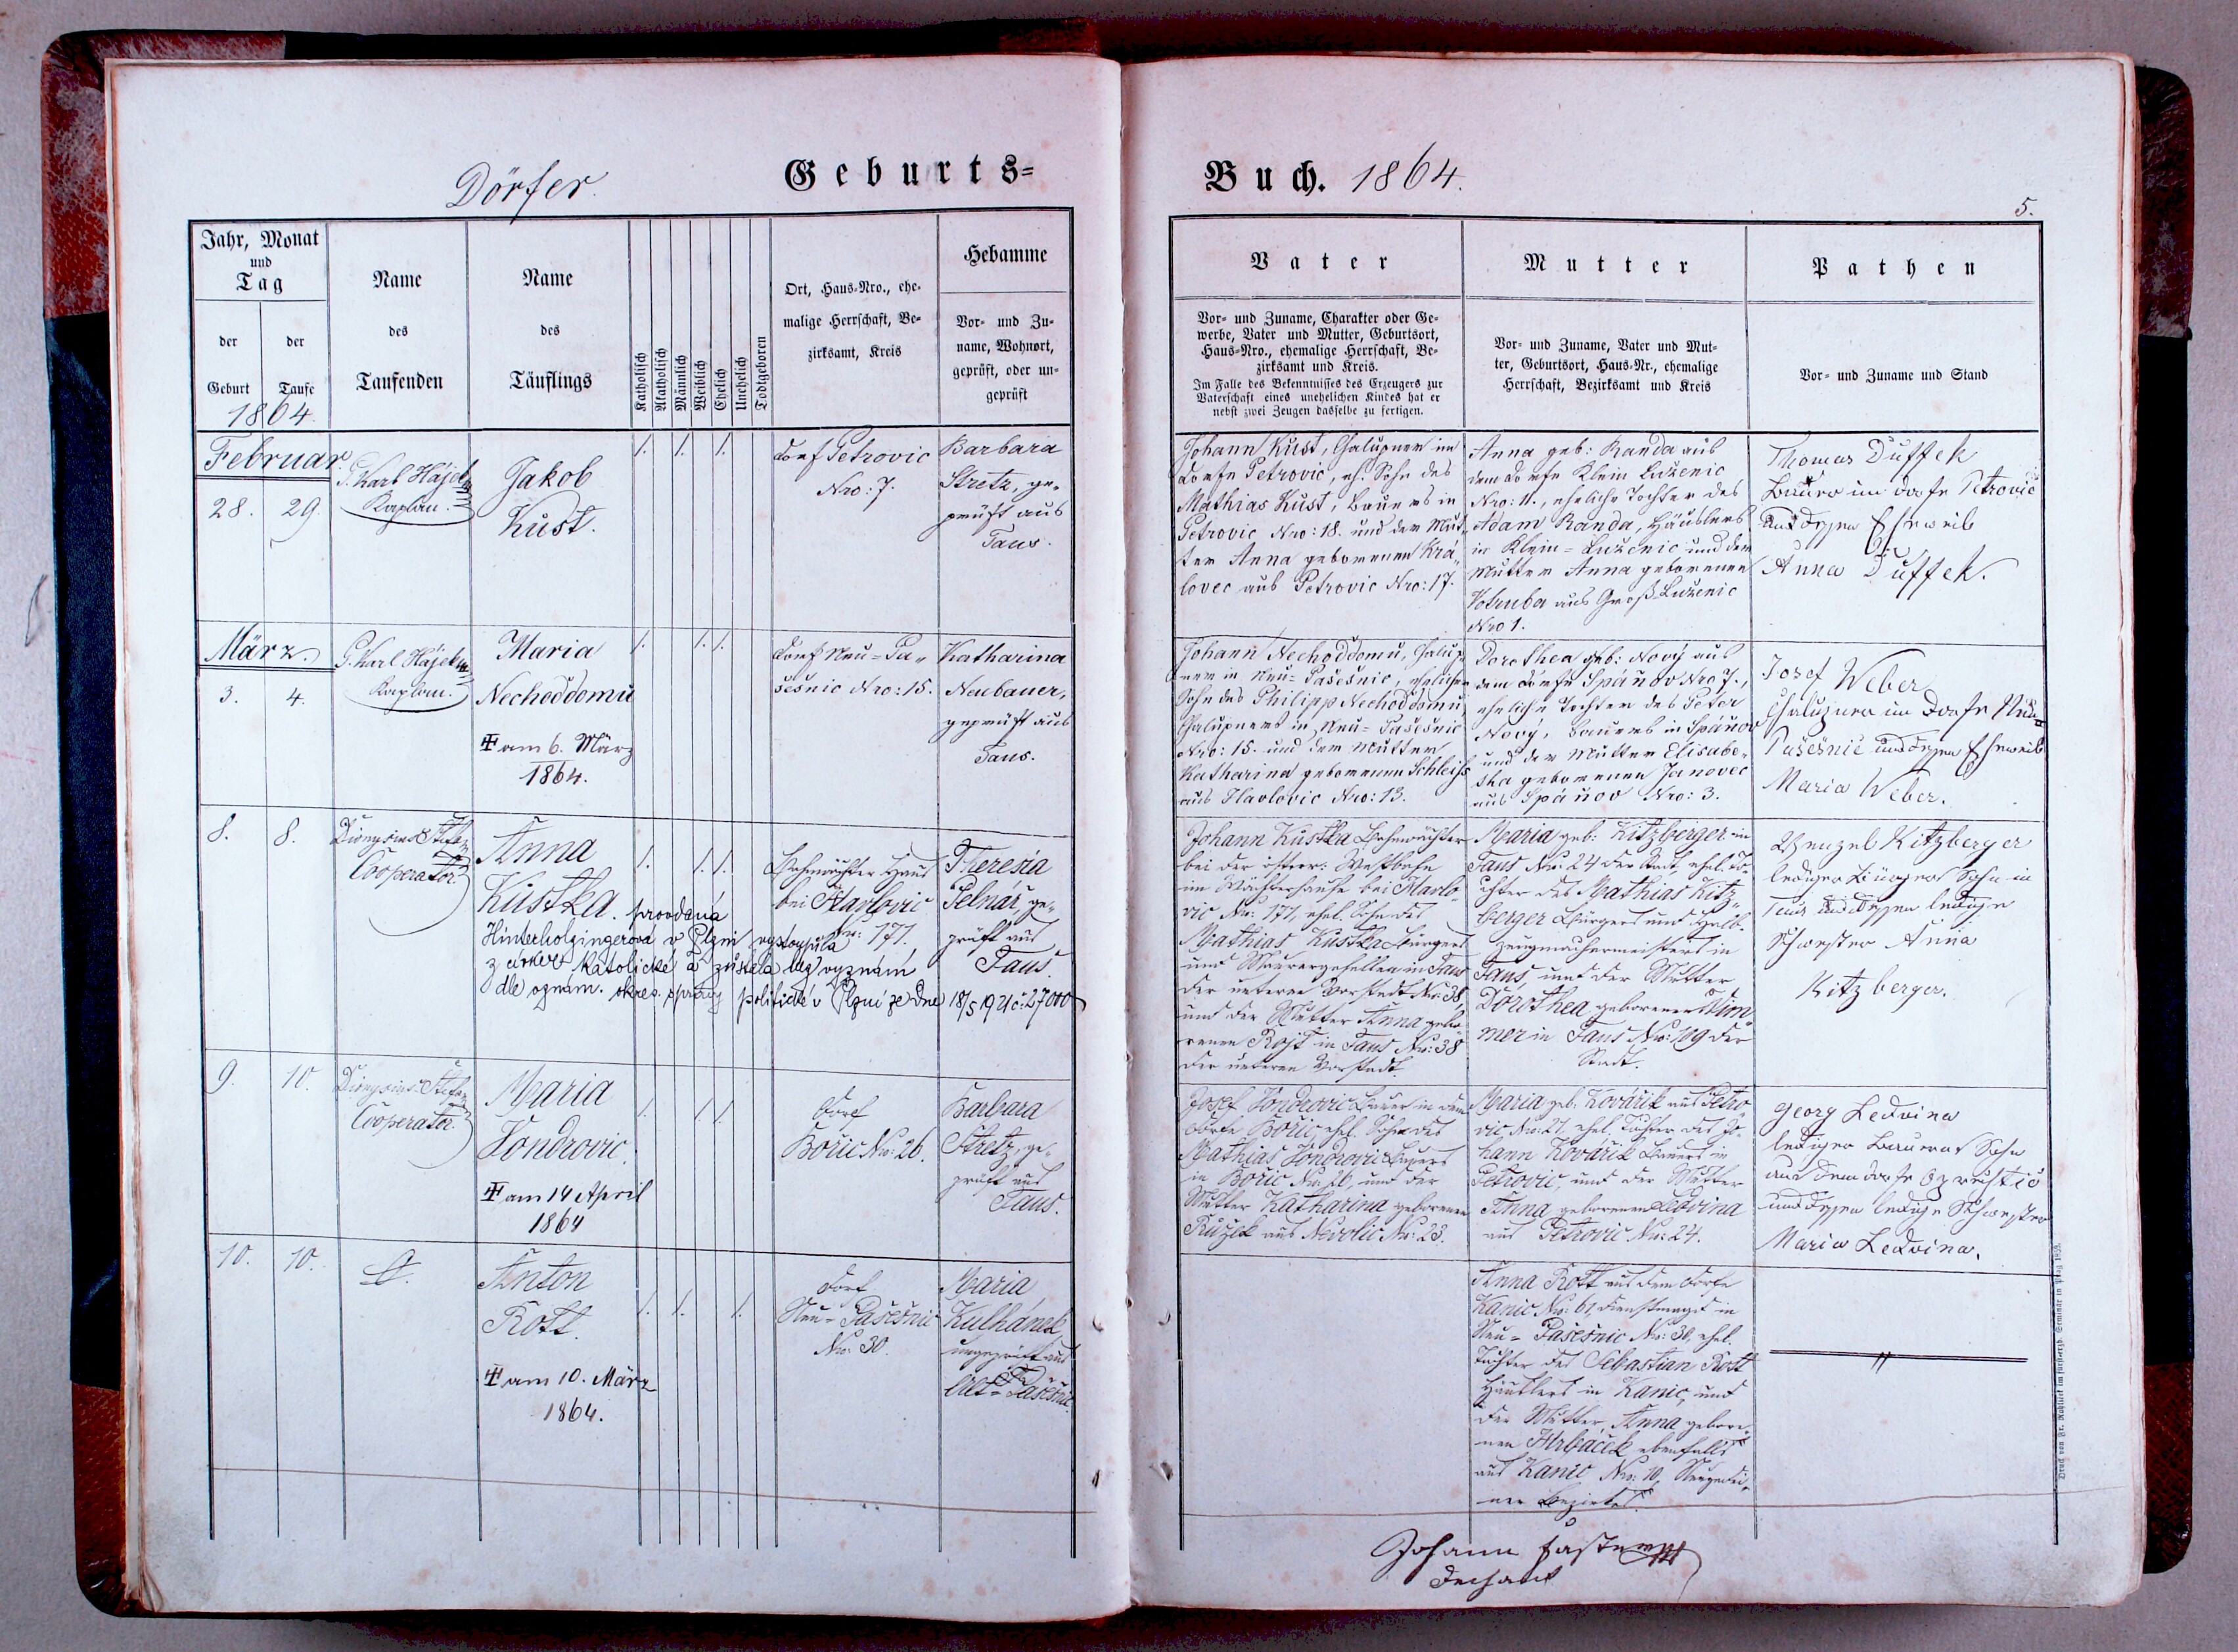 Dörfer.
Geburts=
Jahr, Monat
und
Tag
der
Geburt
der
Taufe
1864.
Name
des
Taufenden
Name
des
Täuflings
Katholisch
Akatholisch
Männlich
Weiblich
Ehelich
Unehelich
Todtgeboren
Ort, Haus-Nro., ehe-
malige Herrschaft, Be-
zirksamt, Kreis
Hebamme
Vor- und Zu-
name, Wohnort,
geprüft, oder un-
geprüft
Februar.
28. 29.
P. Karl Hájek
Kaplan.
Jakob
Kust.
1. 1. 1.
Dorf Petrovic
Nro: 7.
Barbara
Stretz, ge-
prüft aus
Taus.
März.
3. 4.
P. Karl Hájek
Kaplan.
Maria
Nechoddomu
am 6. März
1864.
1. 1. 1.
Dorf Neu=Pa„
sešnic Nro: 15.
Katharina
Neubauer,
geprüft aus
Taus.
8. 8.
Dionysius
Cooperator.
Anna
Kustka. provdaná
Hinterholzingerová v Plzni vystoupila
z církve katolické a zůstala bez vyznání
dle oznám. okres. správy politické v Plzni ze dne 18/5 1921 č. 27000
1. 1. 1.
Bahnwächter Haus
bei Havlovic
Nro: 171.
Theresia
Pelnář, ge-
prüft aus
Taus.
9. 10.
Dionysius
Cooperator.
Maria
Vondrovic.
am 14 April
1864
1. 1. 1.
Dorf
Bořic Nro: 26.
Barbara
Stretz, ge-
prüft aus
Taus.
10. 10.
Anton
Rott.
am 10. März
1864.
1. 1. 1.
Dorf
Neu=Pašešnic
Nro: 30.
Maria
Kulhánek,
ungeprüft aus
Alt=Pašešnic.
Buch. 1864.
5.
Vater
Vor- und Zuname, Charakter oder Ge-
werbe, Vater und Mutter, Geburtsort,
Haus-Nro., ehemalige Herrschaft, Be-
zirksamt und Kreis.
Im Falle des Bekenntnisses des Erzeugers zur
Vaterschaft eines unehelichen Kindes hat er
nebst zwei Zeugen dasselbe zu fertigen.
Mutter
Vor- und Zuname, Vater und Mut-
ter, Geburtsort, Haus-Nr., ehemalige
Herrschaft, Bezirksamt und Kreis
Pathen
Vor- und Zuname und Stand
Johann Kust, Chalupner im
Dorfe Petrovic, eh. Sohn des
Mathias Kust, Bauers in
Petrovic Nro: 18. und der Mut-
ter Anna geborenen Krá„
lovec aus Petrovic Nro: 17.
Anna geb: Randa aus
dem Dorfe Klein Luženic
Nro: 11., eheliche Tochter des
Adam Randa, Häuslers
in Klein=Luženic und der
Mutter Anna geborenen
Kotruba aus Groß Luženic
Nro 1.
Thomas Duffek
Bauer im Dorfe Petrovic
und dessen Eheweib
Anna Duffek.
Johann Nechoddomu, Chalup-
ner in Neu=Pašešnic, ehelicher
Sohn des Philipp Nechoddomu
Chalupners in Neu=Pašešnic
Nro: 15. und der Mutter
Katharina geborenen Schleiss
aus Havlovic Nro: 13.
Dorothea geb: Nový aus
dem Dorfe Spáňov Nro 7.,
eheliche Tochter des Peter
Nový, Bauers in Spáňov
und der Mutter Elisabe„
tha geborenen Janovec
aus Spáňov Nro: 3.
Josef Weber
Chalupner im Dorfe Neu=
Pašešnic und dessen Eheweib
Maria Weber.
Johann Kustka Bahnwächter
bei der Westbahn
im Wächterhause bei Havlo-
vic Nro: 171, ehel. Sohn des
Mathias Kustka Bürgers
und Maurergesellen in Taus
der unteren Vorstadt Nro: 38,
und der Mutter Anna gebo-
renen Rojt in Taus Nro: 38
der unteren Vorstadt.
Maria geb: Kitzberger in
Taus Nro: 24 der Stadt, ehel. To-
chter des Mathias Kitz„
berger Bürgers und Halb-
zeugmachermeisters in
Taus, und der Mutter
Dorothea geborenen
mer in Taus Nro: 109 der
Stadt.
Wenzel Kitzberger
lediger Bürgers Sohn in
Taus und dessen ledige
Schwester Anna
Kitzberger.
Josef Vondrovic Bauer in dem
Dorfe Bořic, ehel. Sohn des
Mathias Vondrovic Bauers
in Bořic Nro: 26, und der
Mutter Katharina geborenen
Růžek aus Nevolic Nro: 23.
Maria geb. Kovářik aus Petro
vic Nro: 27, ehel. Tochter des Jo-
hann Kovářik Bauers in
Petrovic, und der Mutter
Anna geborenen Ledvina
aus Petrovic Nro: 24.
Georg Ledvina
lediger Bauers Sohn
aus dem Dorfe
und dessen ledige Schwester
Maria Ledvina.
Anna Rott aus dem Dorfe
Kanic Nro: 61, Dienstmagd in
Neu=Pašešnic Nro: 30, ehel.
Tochter des Sebastian Rott
Häuslers in Kanic, und
der Mutter Anna gebore-
nen Hrbáček ebenfalls
aus Kanic Nro: 10, Neugedei-
ner Bezirkes.
Johann Faster
Dechant
Druck von Fr. Rohliček im fürsterzb. Seminär in Prag 1852.